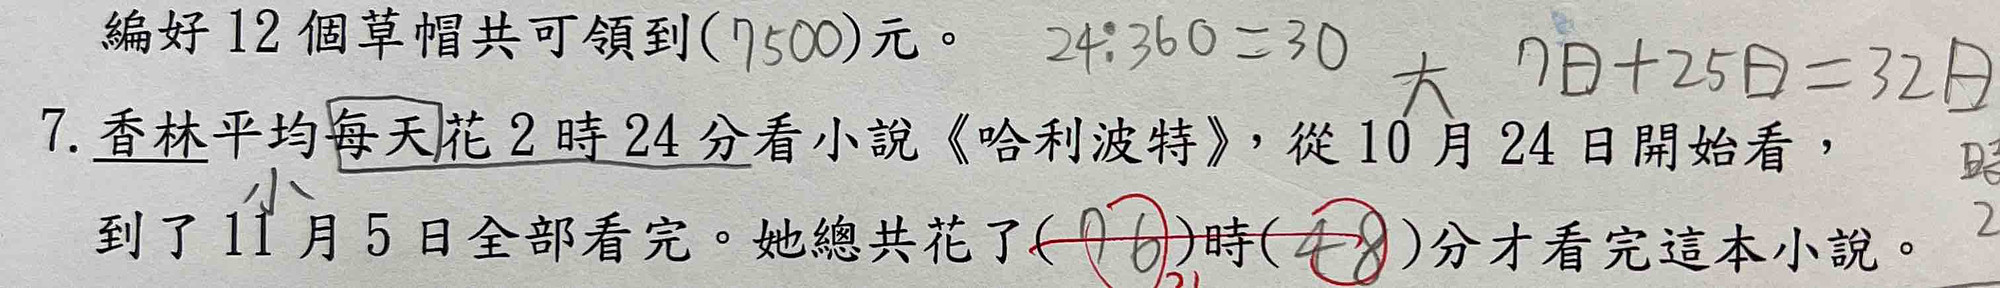 編好 12 個草帽共可領到(7500)元。 24:360=30
大 7日+25日=32日
7. 香林平均每天花 2 時 24 分看小說《哈利波特》，從 10 月 24 日開始看，
小
到了 11 月 5 日全部看完。她總共花了(76)時(48)分才看完這本小說。